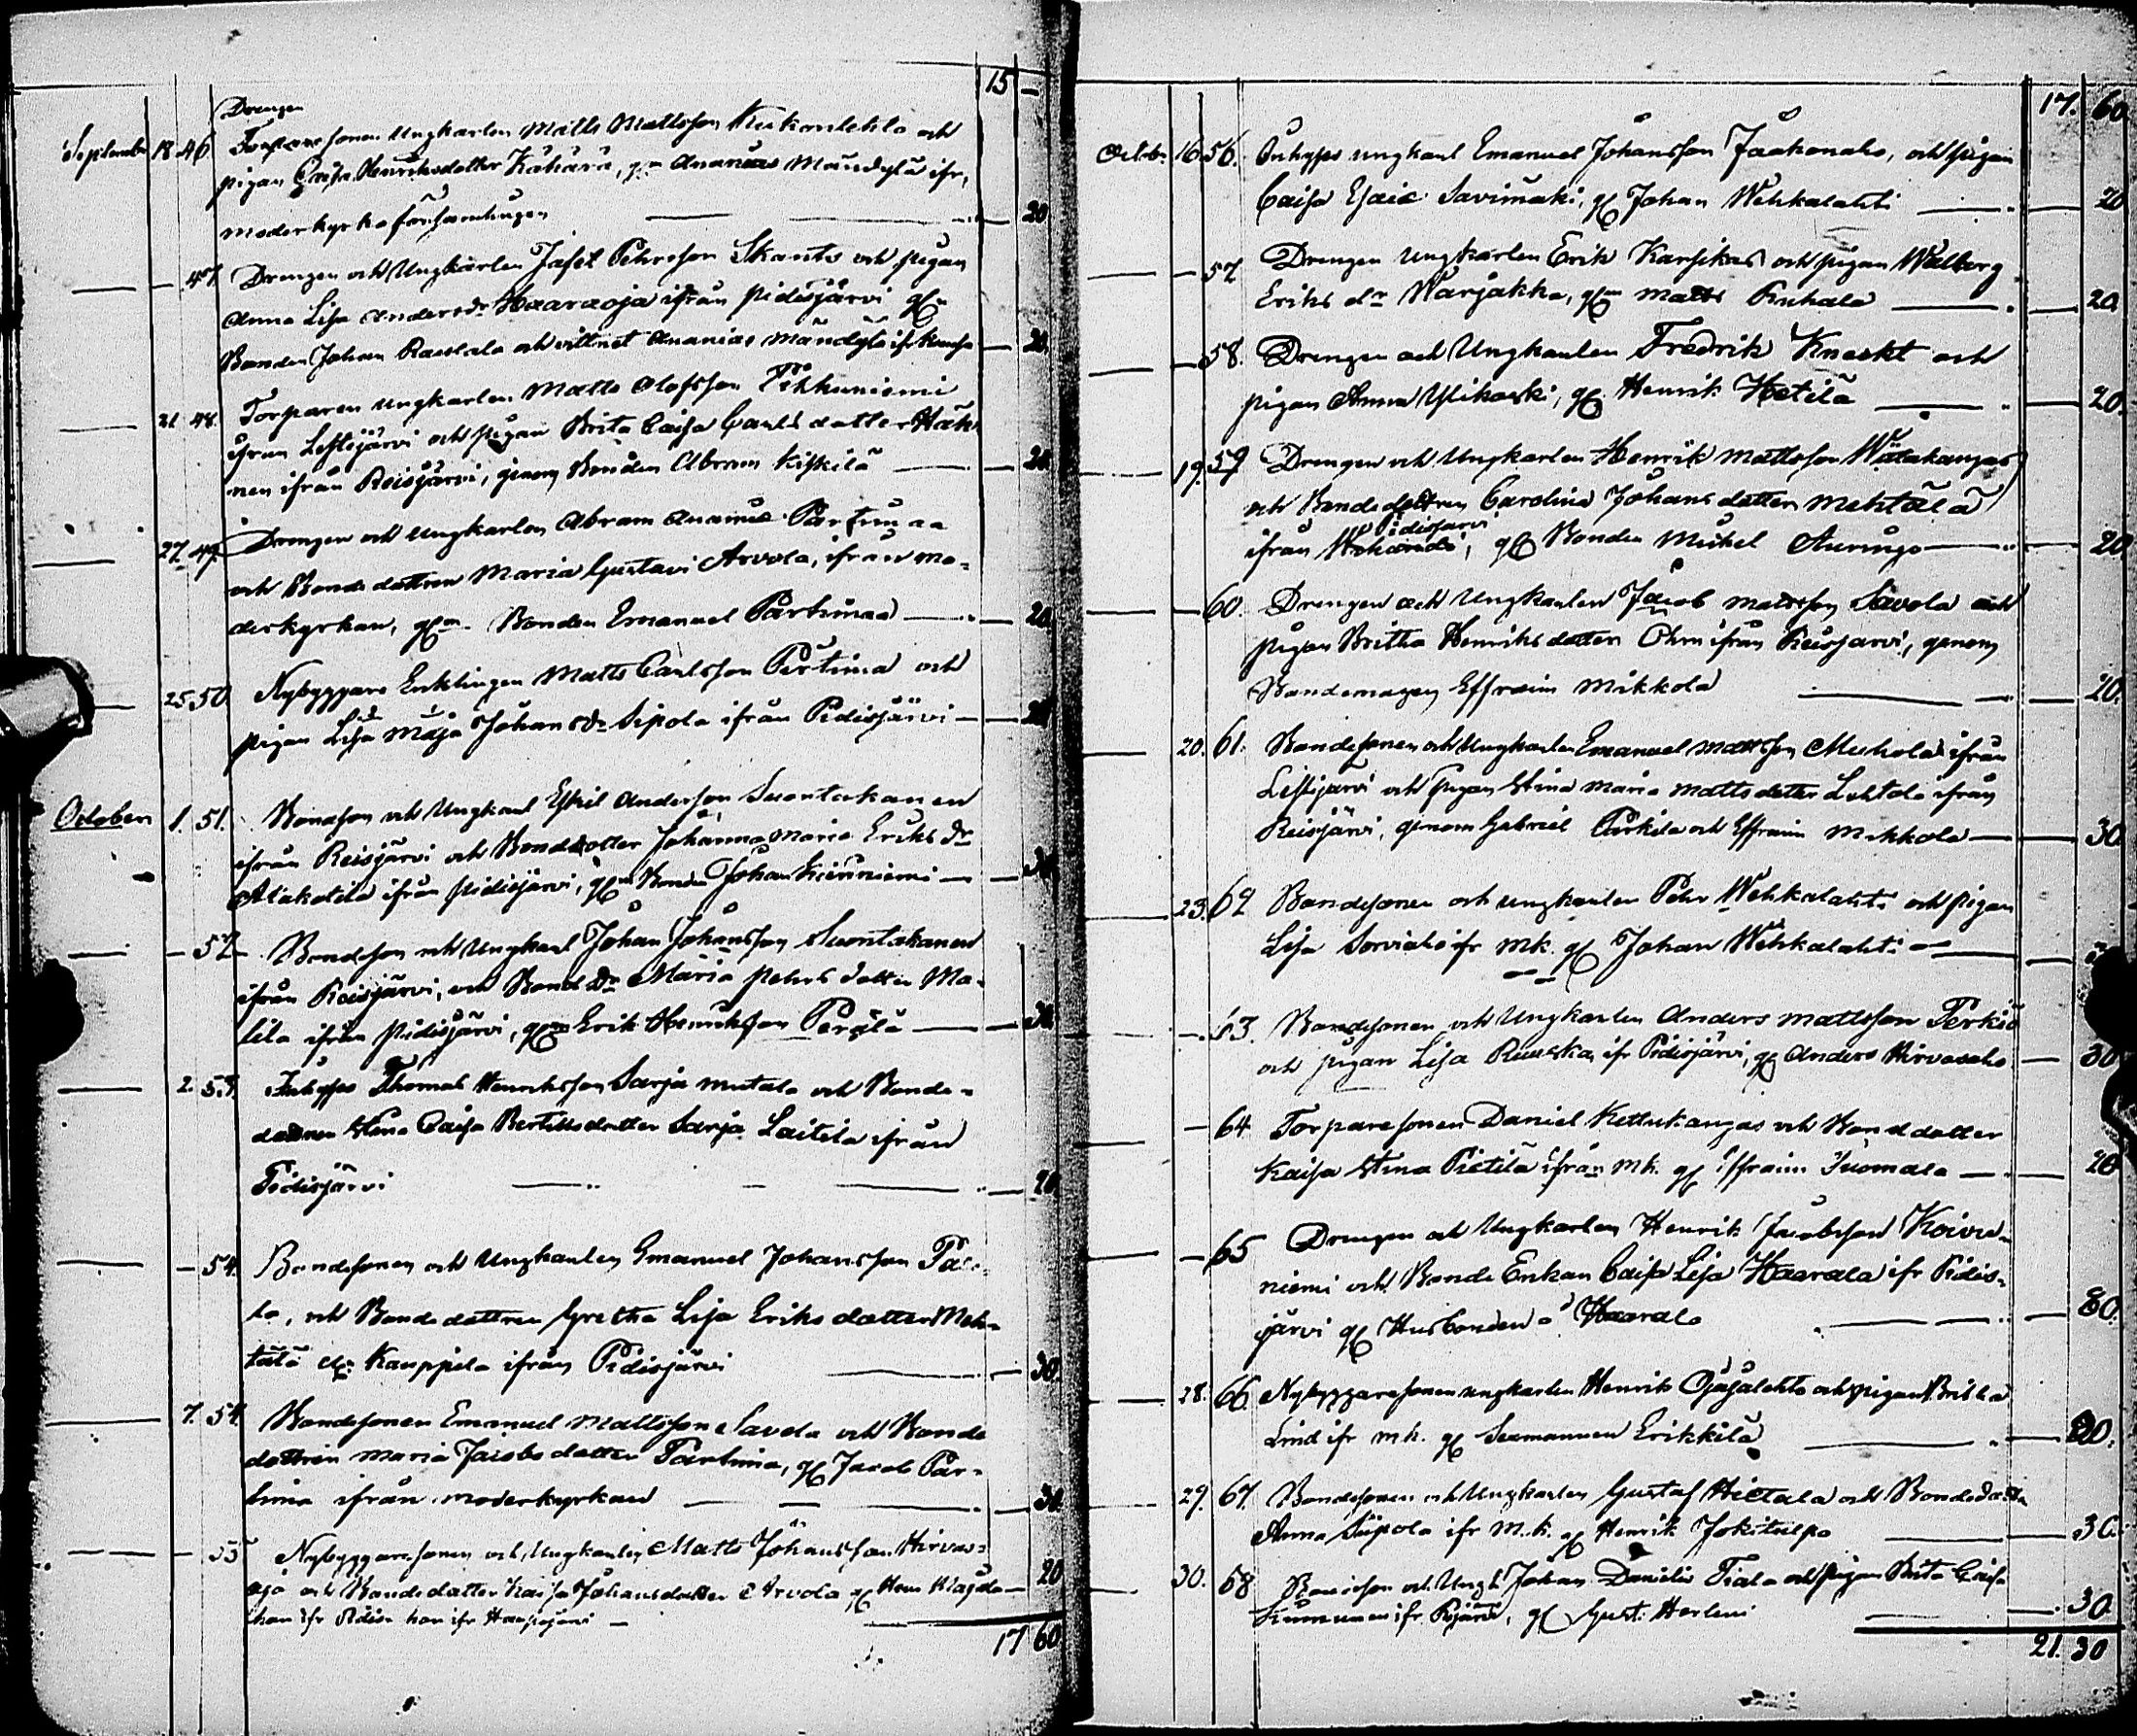 15 -
Drengen
September 18 46 Torparesonen Ungkarlen Matts Mattsson Kukonlehto och
pigan Caisa Henriksdotter Kähärä, gm Ananias Mandylä ifr,
moderkyrko församlingen 20
47 Drengen och Ungkarlen Jafet Pehrsson Skants och pigan
Anna Lisa Andersdr Haaraoja ifrån Pidisjärvi gm
Bonden Johan Rautala och vittnet Ananias Mandylä 20.
21 48. Torparen ungkarlen Matts Olofsson Pihkuniemi
ifrån Lestijärvi och pigan Brita Caisa Carlsdotter Häki
nen ifrån Reisjärvi, genom Bonden Abram Kiskilä 20
27 49 Drengen och ungkarlen Abram Ananiae Partimaa
och Bonde dottren Maria Gustavi Arvola, ifrån mo=
derkyrkan, gm Bonden Emanuel Partimaa 20.
25 50. Nybyggare Enklingen Matts Carlsson Pertima och
pigan Lisa Maja Johansdr Sipola ifrån Pidisjärvi 20
October 1. 51. Bondson och Ungkarl Eskil Andersson Suontakanen
ifrån Reisjärvi och Bonddotter Johanna Maria Eriks dr
Alakotila ifrån Pidisjärvi, gm Bonden Johan Kinniemi 30
52 Bondeson och Ungkarl Johan Johansson Suontakanen
ifrån Reisjärvi, och Bond dr Maria Pehrs dotter Ma=
tila ifrån Pidisjärvi, gm Erik Henriksson Perälä 30.
2. 53. Inhyses Thomas Henriksson Sarja mutala och Bonde=
dottren Stina Caisa Bertilsdotter Sarja Laitila ifrån
Pidisjärvi 20.
54. Bondesonen och Ungkarlen Emanuel Johansson
la, och Bonde dottren Gretha Lisa Eriks dotter Meh=
tälä Kauppila ifrån Pidisjärvi 30.
7. 54. Bondesonen Emanuel Mattsson Savola och Bonde
dottren Maria Jacobs dotter Partima, gm Jacob Par=
tima ifrån moderkyrkan 30.
55 Nybyggaresonen och Ungkarlen Matts Johansson Hirvas=
oja och Bonde dotter Kaisa Johansdotter Arvola gm 20
hon ifr Pidisn han ifr Haapajärvi
17 60
17. 60
Octobr. 16 56. Inhyses ungkarl Emanuel Johansson Jaakonaho, och pigan
Caisa Esaiæ Savimäki, gm Johan Wehkalahti 20
57 Drengen Ungkarlen Erik Karsikas och pigan Walborg
Eriks dr Warjakka, gm Matts Puhala 20.
58. Drengen och Ungkarlen Fredrik Kneckt och
pigan Anna Ylikoski, gm Henrik Hetilä 20.
19. 59 Drengen och Ungkarlen Henrik Mattsson Wälikangas
och Bondedottren Carolina Johans dotter Mehtälä
Pidisjärvi
ifrån gm Bonden Mickel Aeringo 20
60. Drengen och Ungkarlen Jacob Mattsson Savola och
pigan Britha Henriks dotter Ohra ifrån Reisjärvi, genom
Bondemagen Effraim Mikkola 20.
20. 61. Bondesonen och Ungkarlen Emanuel Mattsson Muhola ifrån
Lestijärvi och pigan Stina Maria Matts dotter Lehtola ifrån
Reisjärvi, genom Gabriel Purkila och Effraim Mikkola 30
23. 62 Bondesonen och ungkarlen Pehr Wehkalahti och pigan
Lisa Sorvisto ifr mk. gm Johan Wehkalahti
63. Bondesonen och Ungkarlen Anders Mattsson Perkiö
och pigan Lisa Ruuska ifr Pidisjärvi, gm Anders Hirvasaho 30
64 Torparesonen Daniel Kettukangas och Bonddotter
Kaisa Stina Pietilä ifrån mk. gm Effraim Tuomala 20
65 Drengen och Ungkarlen Henrik Jacobsson Koivu=
niemi och Bonde Enkan Caisa Lisa Haarala ifr Pidis=
järvi gm Husbonden å Haarala 80.
28. 66 Nybyggaresonen ungkarlen Henrik Ojajalehto och pigan Britha
Lind ifr mk. gm Sexmannen Erikkilä 20.
29. 67. Bondesonen och Ungkarlen Gustaf Hietala och Bondedottr
Anna Siipola ifr m.k. gm Henrik Jokitulpo 30.
30. 68 Bondeson och Ungk. Johan Danielis Tiala och pigan Brita Caisa
Kinnunen ifr Pijärvi, gm Gust: Herleni 30
21. 30